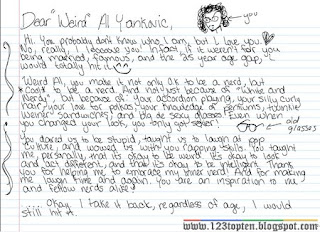 Dear "Weird" Al Yankovic,
you
Hi. You probably don't know who I am, but I love you.
No, really, I looooove you! Infact, if it weren't for you
being married, famous, and the 25 year age gap, I
would totally hit it
Weird Al, you make it not only O.K. to be a nerd, but
cool to be a nerd. And not just because of "White and
Nerdy", but because of your accordion playing, your silly curly
hair, your love for polka, your knowledge of penisms,
Wener sandwiches, and the de sexy glasses. Even when
you changed your look, you only got sexier.
old
glasses
You dared us to be stupid, taught us to laugh at pop
Culture, and wowed us with you rapping skills. You taught
me, personally, that its okay to be weird. It's okay to look
and act different, and that it's okay to be intelligent. Thank
you for helping me to embrace my inner nerd! And for making
me laugh time and again. You are an inspiration to me
and fellow nerds alike!
Okay I take it back, regardless of age, I would
still hit it.
www.123topten.blogspot.com